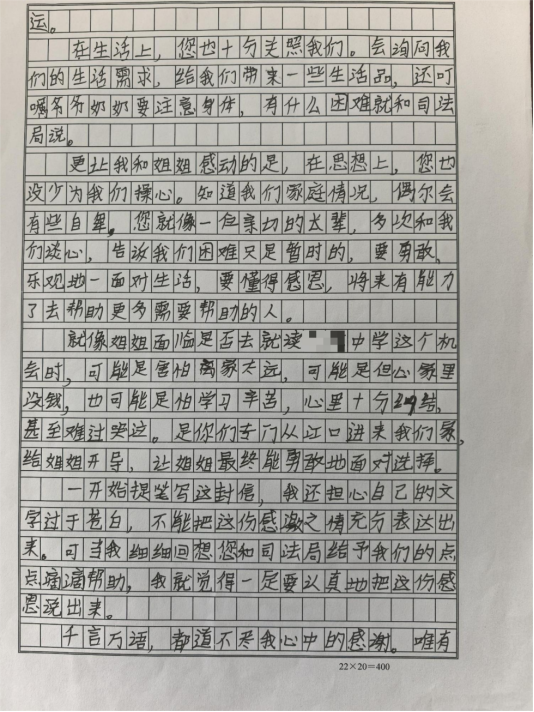 运。
在生活上，您也十分关照我们。会询问我
们的生活需求，给我们带来一些生活品，还叮
嘱爷爷奶奶要注意身体，有什么困难就和司法
局说。
更让我和姐姐感动的是，在思想上，您也
没少为我们操心。知道我们家庭情况，偶尔会
有些自卑。您就像一位亲切的长辈，多次和我
们谈心，告诉我们困难只是暂时的，要勇敢、
乐观地一面对生活，要懂得感恩，将来有能力
了去帮助更多需要帮助的人。
就像姐姐面临是否去就读中学这个机
会时，可能是害怕离家太远，可能是但心家里
没钱，也可能是怕学习辛苦，心里十分纠结，
甚至难过哭这。是你们专门从江口进来我们家，
给姐姐开导，让姐姐最终能勇敢地面对选择。
一开始提笔写这封信，我还担心自己的文
字过于苍白，不能把这份感激之情充分表达出
来。可当我细细回想您和司法局给予我们的点
点滴滴帮助，我就觉得一定要认真地把这份感
恩说出来。
千言万语，都道不尽我心中的感谢。唯有
22×20=400